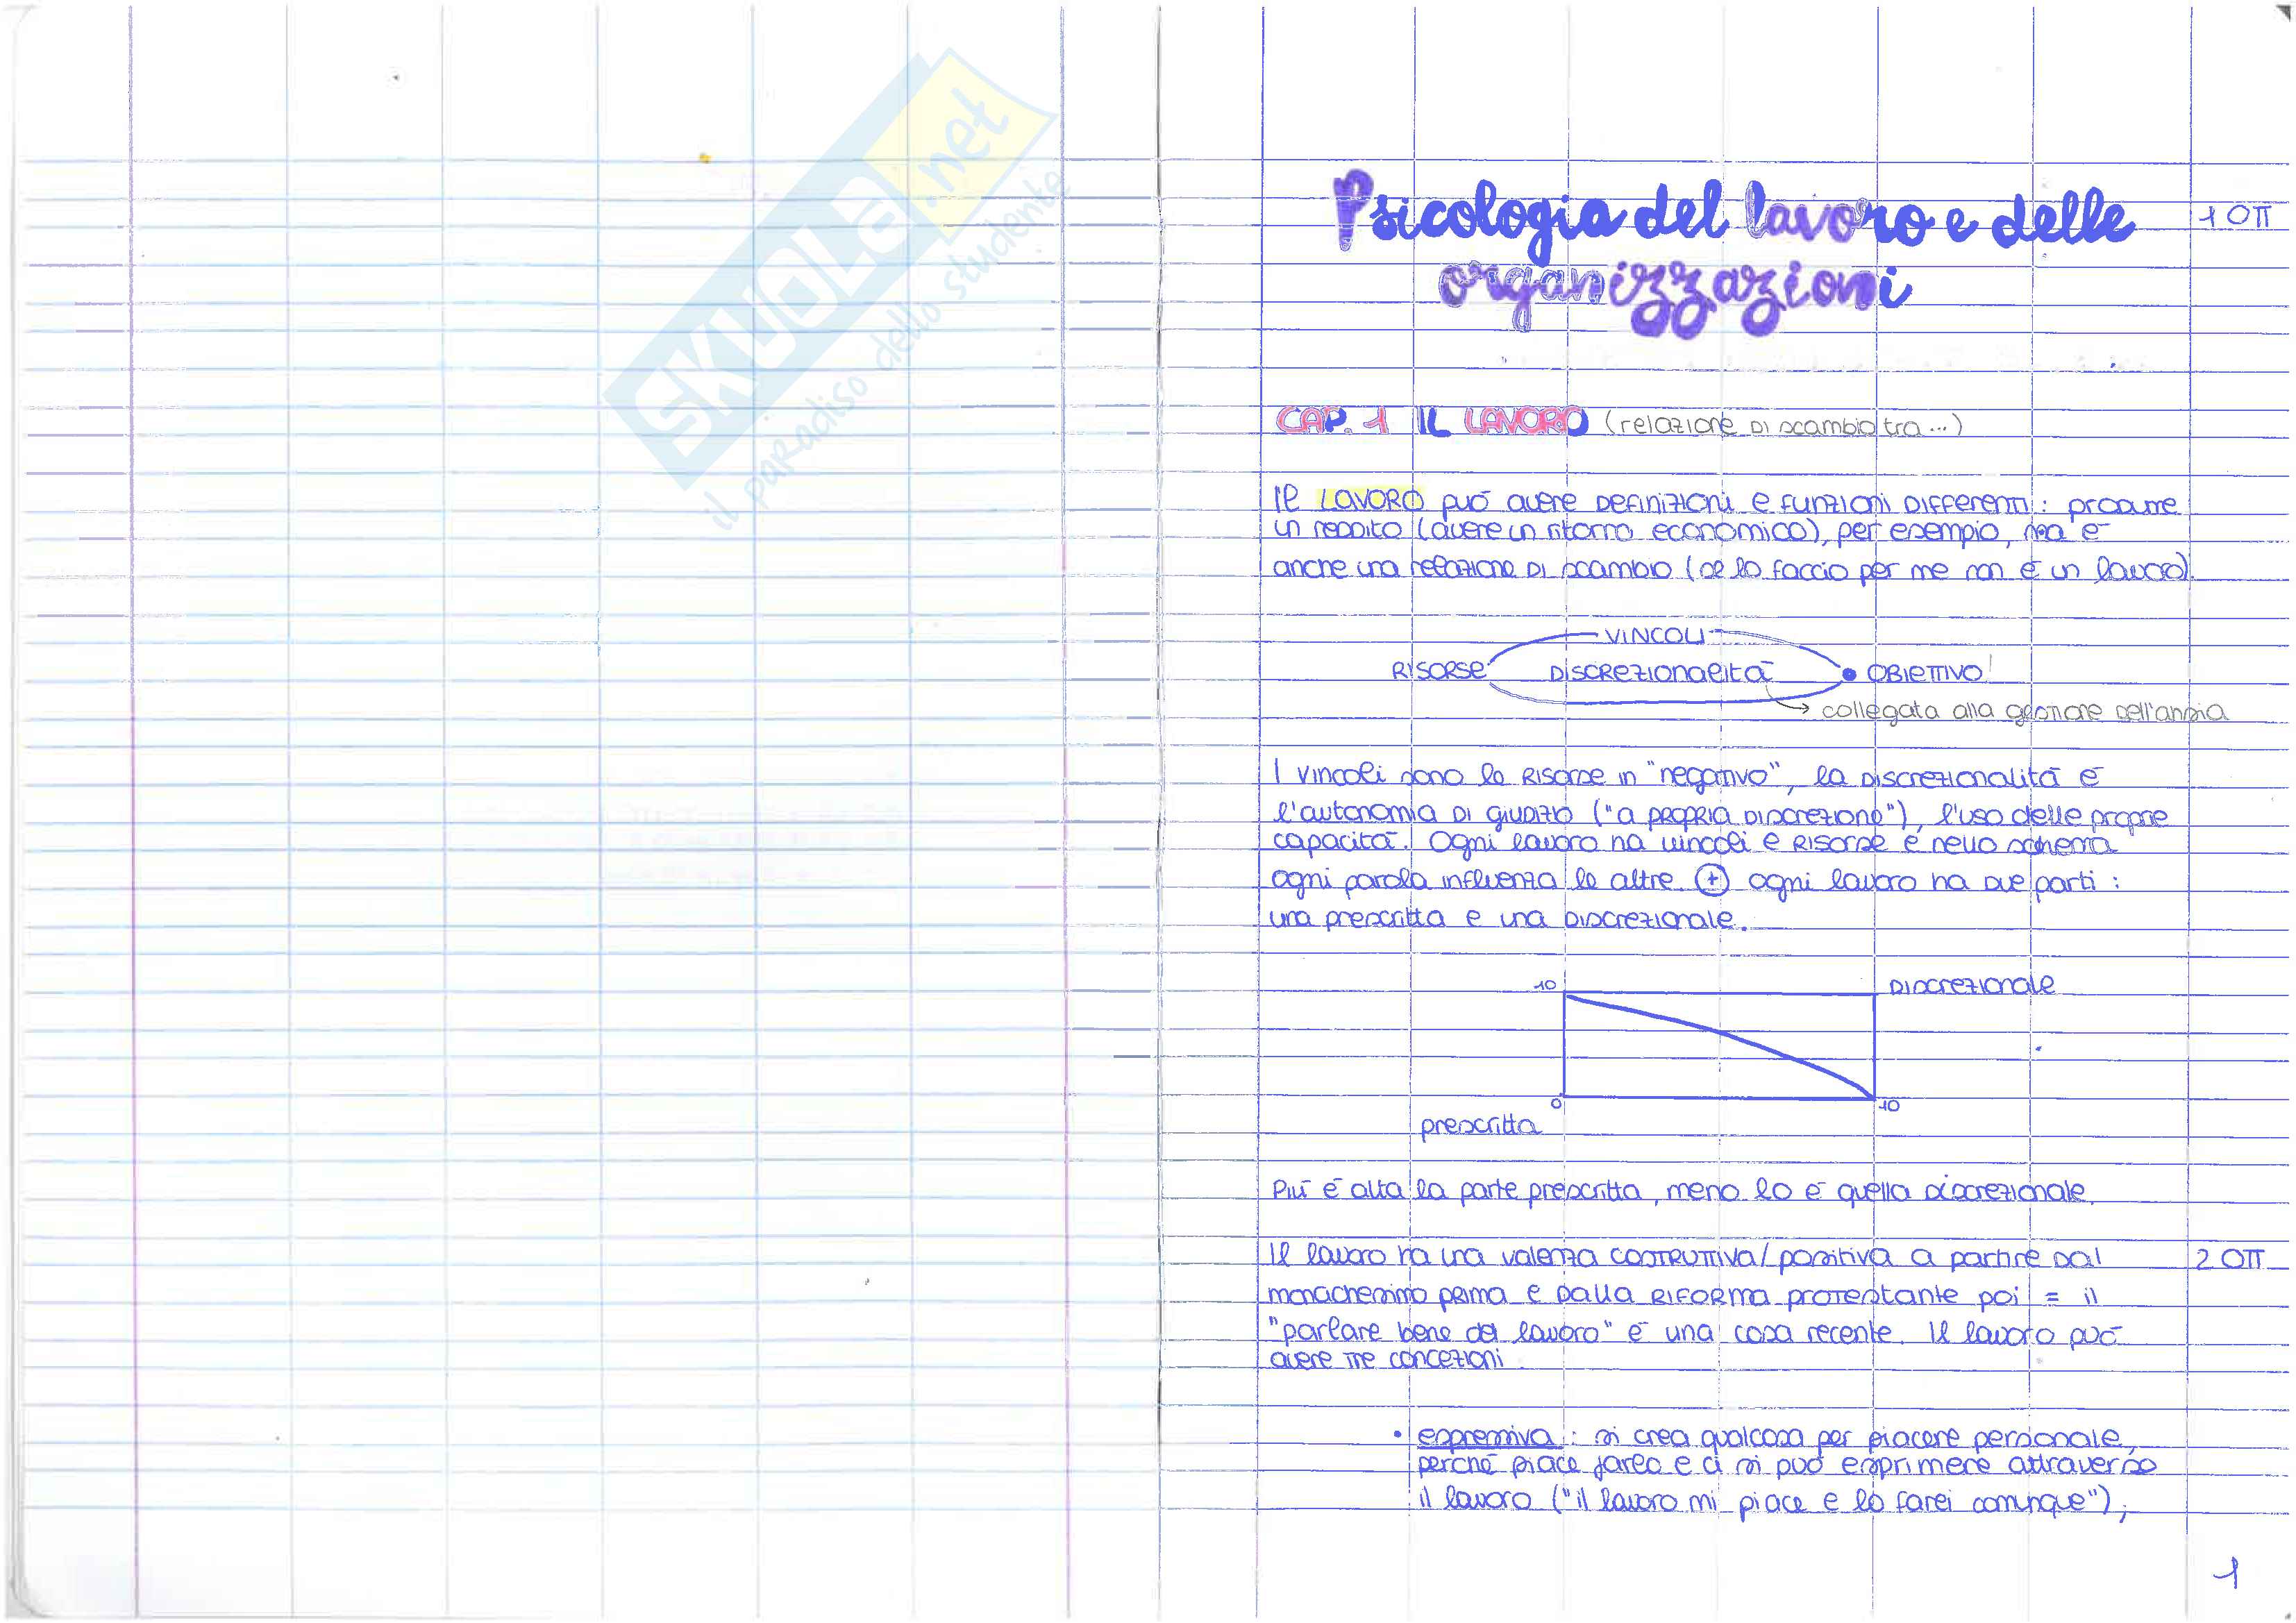 SKUOLA.net
il paradiso dello studente
Psicologia del lavoro e delle
organizzazioni
1 OTT
CAP. 1 IL LAVORO (relazione di scambio tra...)
Il LAVORO può avere definizioni e funzioni differenti: produrre
un reddito (avere un ritorno economico), per esempio, ma è
anche una relazione di scambio (se lo faccio per me non è un lavoro).
VINCOLI
RISORSE DISCREZIONALITÀ • OBIETTIVO!
→ collegata alla gestione dell'ansia
I vincoli sono le risorse in "negativo", la discrezionalità è
l'autonomia di giudizio ("a propria discrezione"), l'uso delle proprie
capacità. Ogni lavoro ha vincoli e risorse e nello schema
ogni parola influenza le altre. (+) ogni lavoro ha due parti:
una prescritta e una discrezionale.
10 DISCREZIONALE
0 10
prescritta
Più è alta la parte prescritta, meno lo è quella discrezionale.
Il lavoro ha una valenza costruttiva/positiva a partire dal
2 OTT
monachesimo prima e dalla RIFORMA protestante poi = il
"parlare bene del lavoro" è una cosa recente. Il lavoro può
avere tre concezioni
• espressiva: si crea qualcosa per piacere personale,
perché piace farlo e ci si può esprimere attraverso
il lavoro ("il lavoro mi piace e lo farei comunque");
1